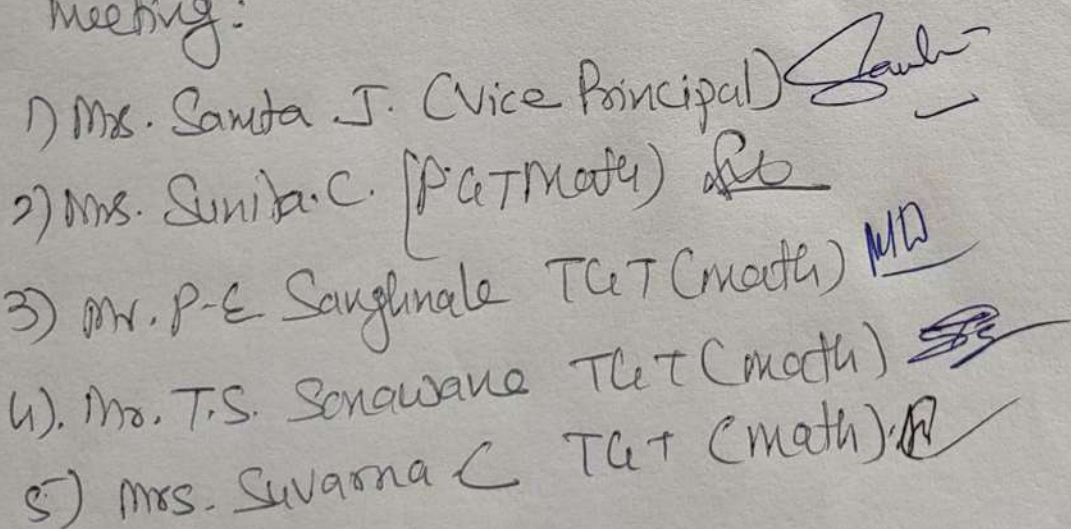 Meeting:
1) Mrs. Samta J. (Vice Principal)
2) Mrs. Sunita.C. (PGT Math)
3) Mr. P-E TGT (math)
4). Mr. T.S. Sonawane TGT (math)
5) Mrs. Suvarna C TGT (math)